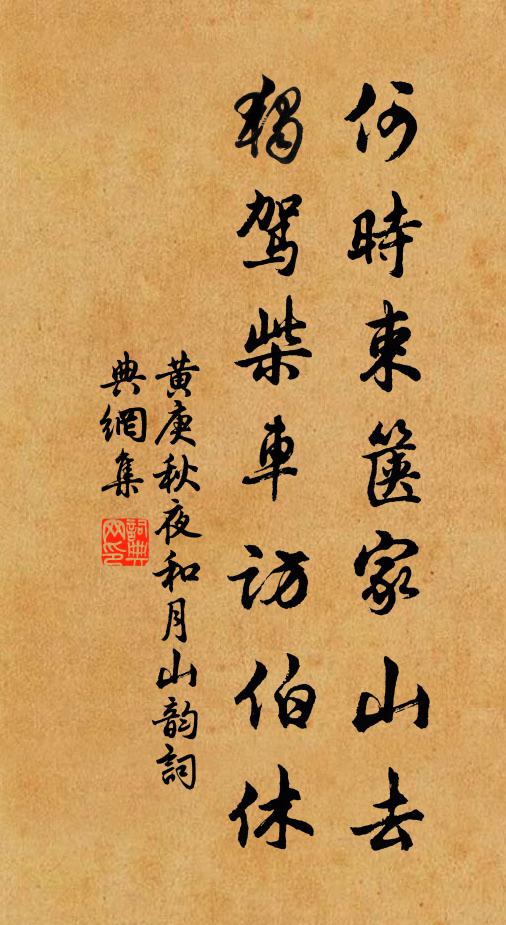 何時束篋家山去
獨駕柴車訪伯休
黃庚秋夜和月山韵詞
典網集
詞典網印